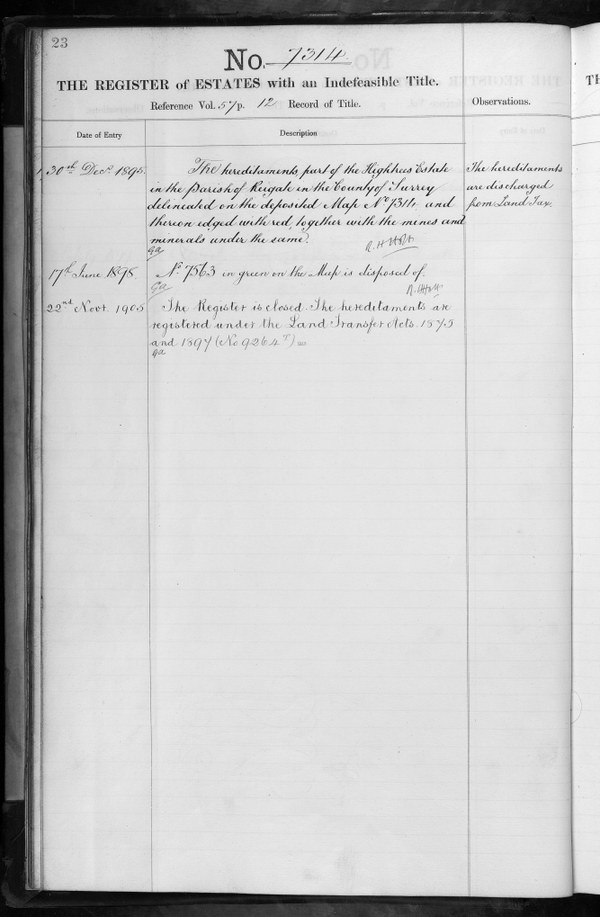 23
No. 7314
THE REGISTER of ESTATES with an Indefeasible Title.
Reference Vol. 57 p. 12 Record of Title.
Observations.
Date of Entry
Description
1 30th Decr. 1895.
The hereditaments part of the Hightrees Estate
in the Parish of Reigate in the County of Surrey
delineated on the deposited Map No 7314 and
thereon edged with red, together with the mines and
minerals under the same.
The hereditaments
are discharged
from Land Tax.
17th June 1898.
No 7563 in green on the Map is disposed of.
22nd Novr. 1905
The Register is closed. The hereditaments are
registered under the Land Transfer Acts. 1875
and 1897 (No 9264T)